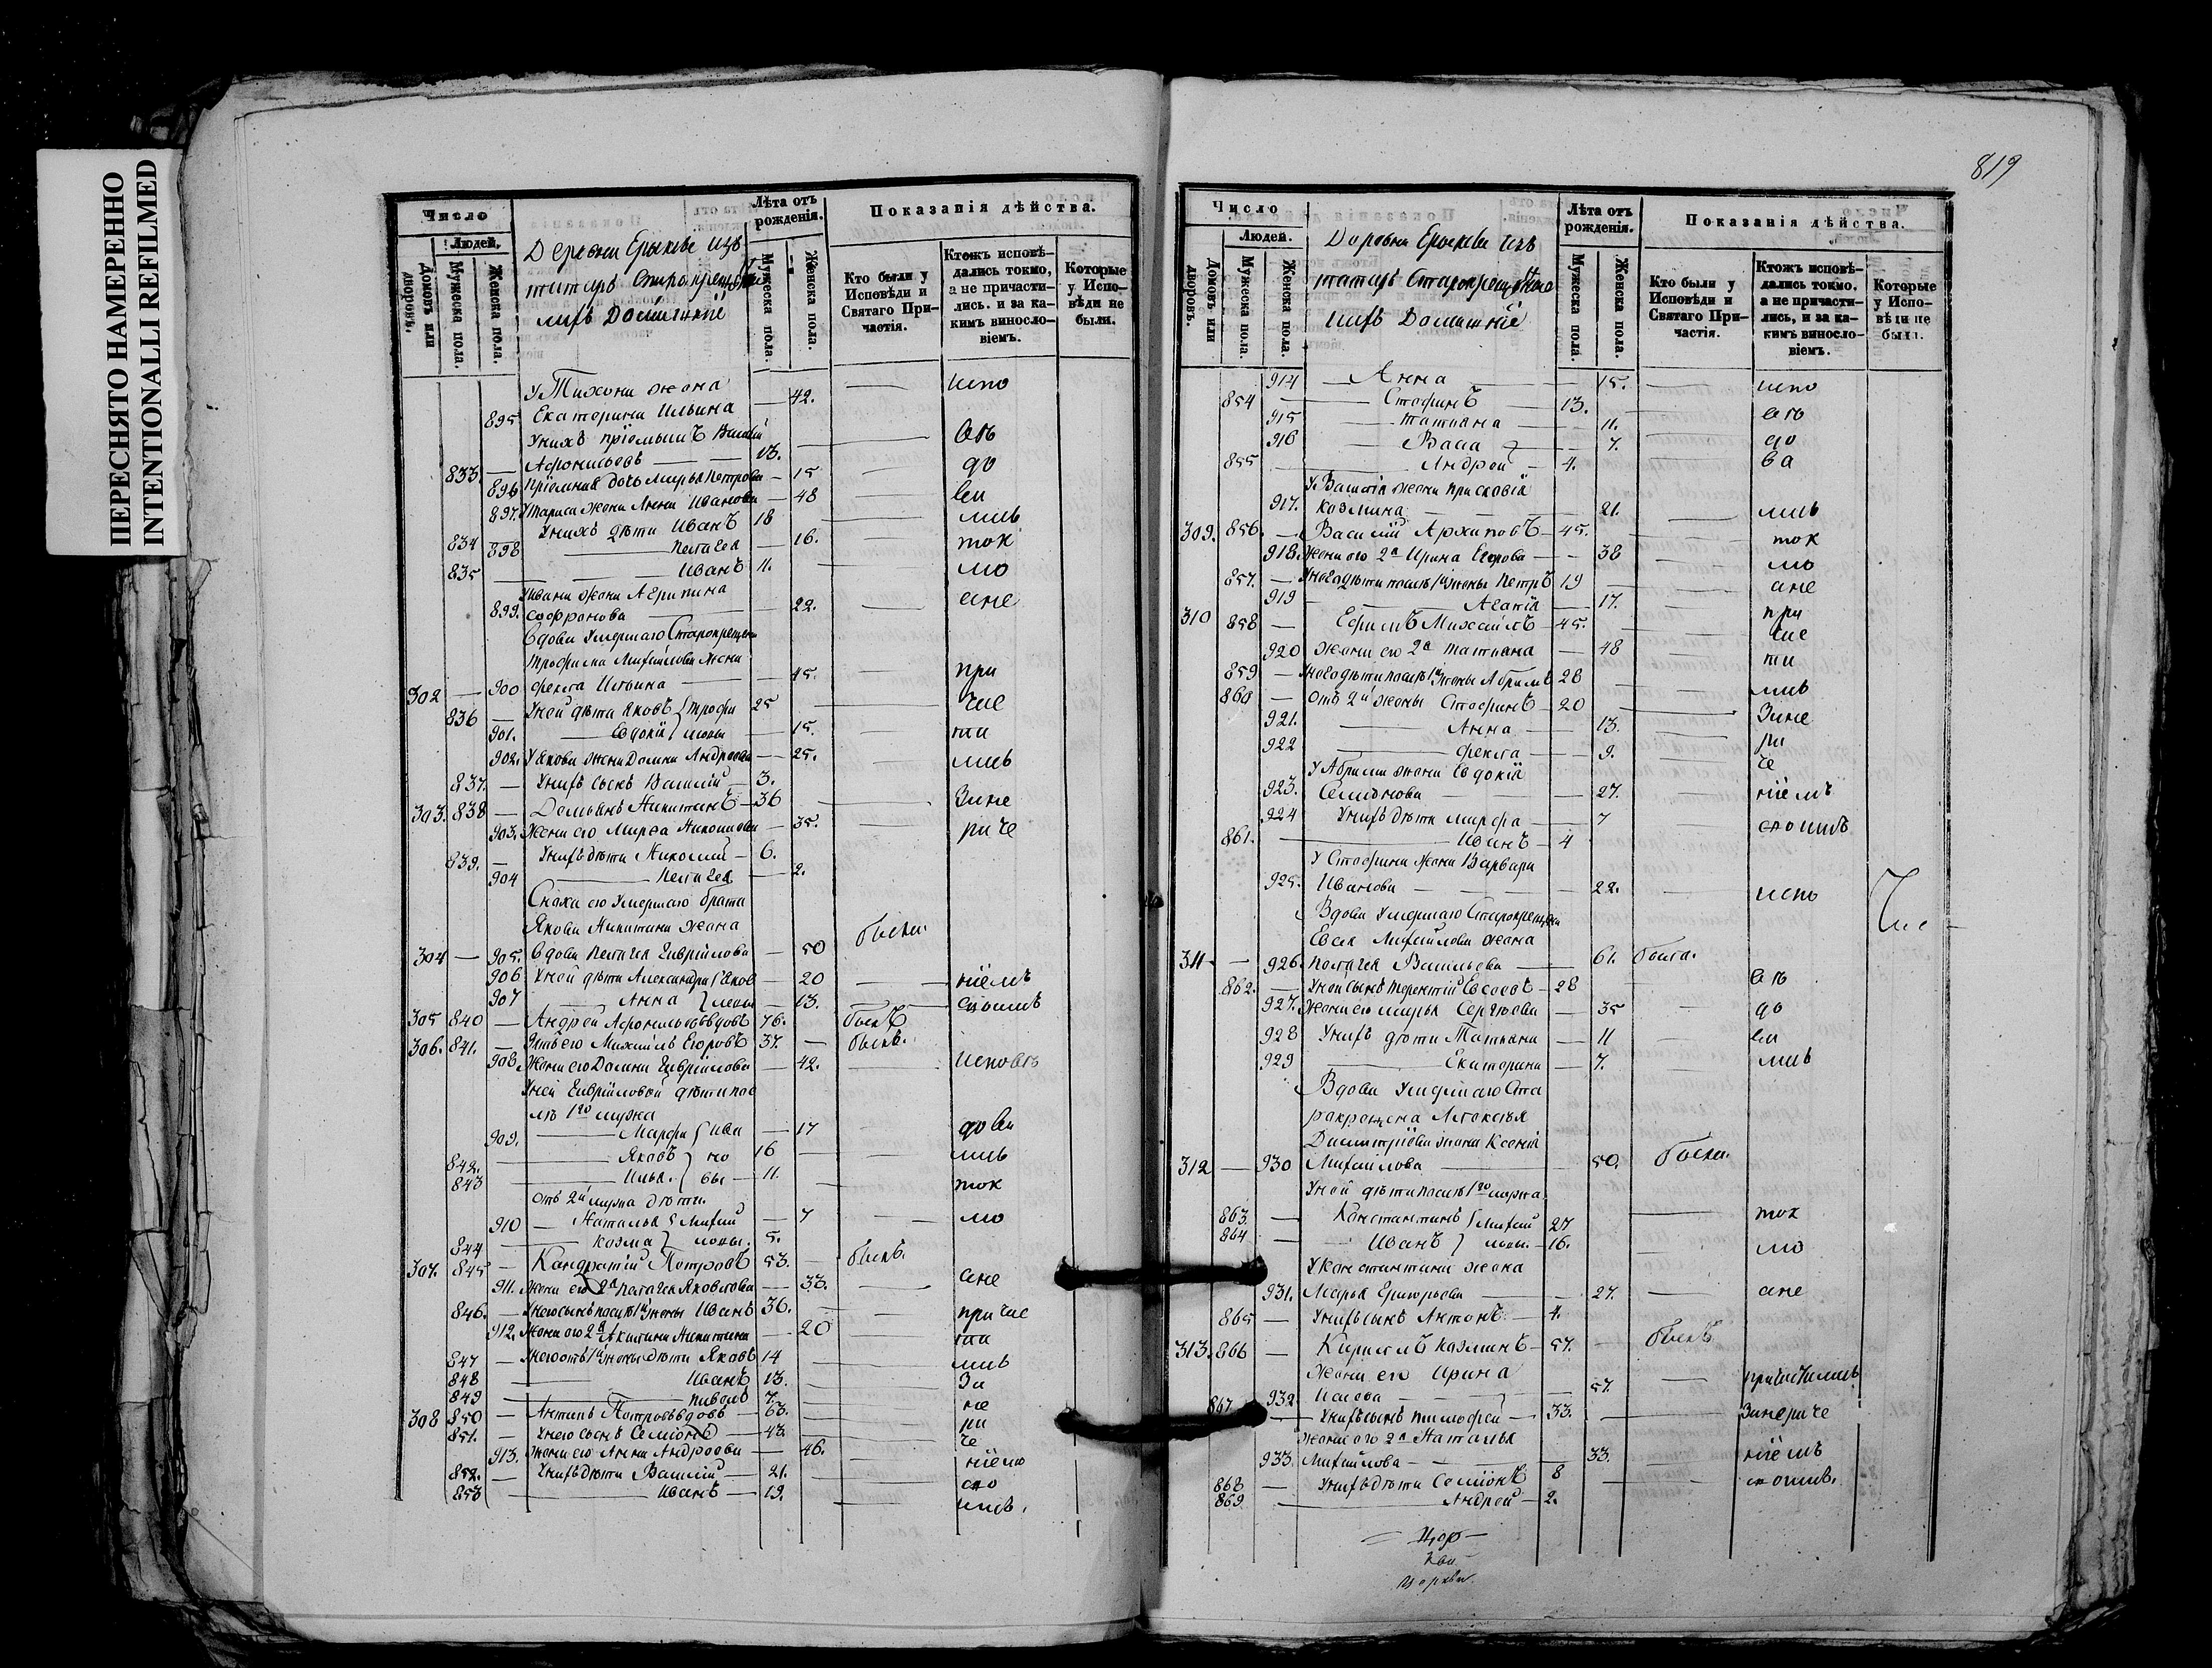 ПЕРЕСНЯТО НАМЕРЕННО
INTENTIONALLI REFILMED
Число
Людей.
Домовъ или дворовъ.
Мужеска пола.
Женска пола.
Деревни Ерыкле изъ
татаръ Старокрещен
Домашніе
Лѣта отъ рожденія.
Мужеска пола.
Женска пола.
Показанія дѣйства.
Кто были у Исповѣди и Святаго Причастія.
Ктожъ исповѣдались токмо, а не причастились. и за какимъ винословіемъ.
Которые у Исповѣди не были.
У Тихона жена
895. Екатерина Ильина 42. испо
У нихъ пріемышъ
833. Афонасьевъ 13. вѣ
896 Пріемная дочь Марья Петрова 15 до
897. жена Анна Иванова 48 ва
834 У нихъ дѣти Иванъ 18 лись
898 Пелагея 16. ток
835 Иванъ 11. мо
У Ивана жена Агрипина
899. Софронова 22. ане
Вдова умершаго Старокрещена
Трофима Михайлова жена
302 900 Фекла Ильина 45. при
836 У ней дѣти Яковъ Трофи 25 час
901. Евдокія мовы 15. ти
902. У Якова жена Домна Андреева 25. лись
837. У нихъ сынъ Василій 3.
303. 838 Демьянъ Никитинъ 36 Зане
903. Жена его Марѳа Николаева 35. ра че
839. У нихъ дѣти Николай 6.
904 Пелагея 2.
Сноха его умершаго брата
Якова Никитина жена
304 905. вдова Пелагея Гаврилова 50 была.
906 У ней дѣти Александра Яков 20 ніемъ
907 Анна левы 13. споимъ
305 840 Андрей Афонасьевъ вдовъ 76. былъ
306. 841. Зять его Михайлъ Егоровъ 37. былъ.
908. Жена его Домна Гаврилова 42. исповѣ
У ней Гавриловой дѣти пос
лѣ 1го мужа
909. Марфа Ива 17 дова
842. Яковъ но 16 лись
843 Илья. вы 11. ток
отъ 2й мужа дѣти.
910 Наталья Михай 7 мо
844 Козма ловы. 5.
307. 845 Кандратій Петровъ 53. былъ.
911. Жена его 2а Пелагея Яковлева 33. ане
846. У него сынъ послѣ 1й жены Иванъ 36. при час
912. Жена его 2а Акилина Никитина 20 ти
847 У него отъ 1й жены дѣти Яковъ 14 лись
848 Иванъ 13. За
849 Павелъ 7. не
308 850 Антипъ Петровъ вдовъ 63. ра
851. У него сынъ Семіонъ 43. че
913. Жена его Анна Андреева 46. ніемъ
852. У нихъ дѣти Василій 21. спо
853 Иванъ 19. имъ.
819
Число
Людей.
Домовъ или дворовъ.
Мужеска пола.
Женска пола.
Деревни Ерыкли изъ
татаръ Старокрещенс
Домашніе
Лѣта отъ рожденія.
Мужеска пола.
Женска пола.
Показанія дѣйства.
Кто были у Исповѣди и Святаго Причастія.
Ктожъ исповѣдались токмо, а не причастились, и за какимъ винословіемъ.
Которые у Исповѣди не были.
914 Анна 15. испо
854 Стефанъ 13. вѣ
915 Татьяна 11. до
916 Васа 7. ва
855 Андрей 4.
У Василія жена Прасковія
917. Козмина 21. лись
309. 856. Василій Архиповъ 45. ток
918. Жена его 2а Ирина Егорова 38 мо
857. У него дѣти послѣ 1й жены Петръ 19 ане
919 Агапія 17. при
310 858 Ефимъ Михайлъ 45. час
920 жена его 2а Татьяна 48 ти
859 У него дѣти послѣ 1й жены Абрамъ 28 лись
860 отъ 2й жены Стефанъ 20 Зане
921. Анна 13. ра
922 Фекла 9. че
У Абрама жена Евдокія
923. Семіонова 27. ніемъ
924 У нихъ дѣти Марфа 7 споимъ
861. Иванъ 4
У Стефана жена Варвара
925. Иванова 22. испо
Вдова умершаго Старокрещена
Евсея Михайлова жена
311. 926. Пелагея Васильева 61. была.
862. У ней сынъ Терентій Евсеевъ 28 вѣ
927. Жена его Марья Сергеева 35 до
928 У нихъ дѣти Татьяна 11 ва
929 Екатерина 7. лись
Вдова умершаго Ста
рокрещена Алексея
Димитріева жена Ксенія
312 930 Михайлова 50. была.
У ней дѣти послѣ 1го мужа.
863. Константинъ Михай 27 ток
864 Иванъ ловы. 16. мо
У Константина жена
931. Марья Григорьева 27. ане
865 У нихъ сынъ Антонъ 4.
313. 866 Кирилъ Казминъ 57. былъ.
Жена его Ирина
932 Исаева 57. причастились
867 У нихъ сынъ Тимофей 33. Зане ра че
Жена его 2а Наталья
933. Михайлова 33. ніемъ
868 У нихъ дѣти Семіонъ 8 споимъ.
869 Андрей 2.